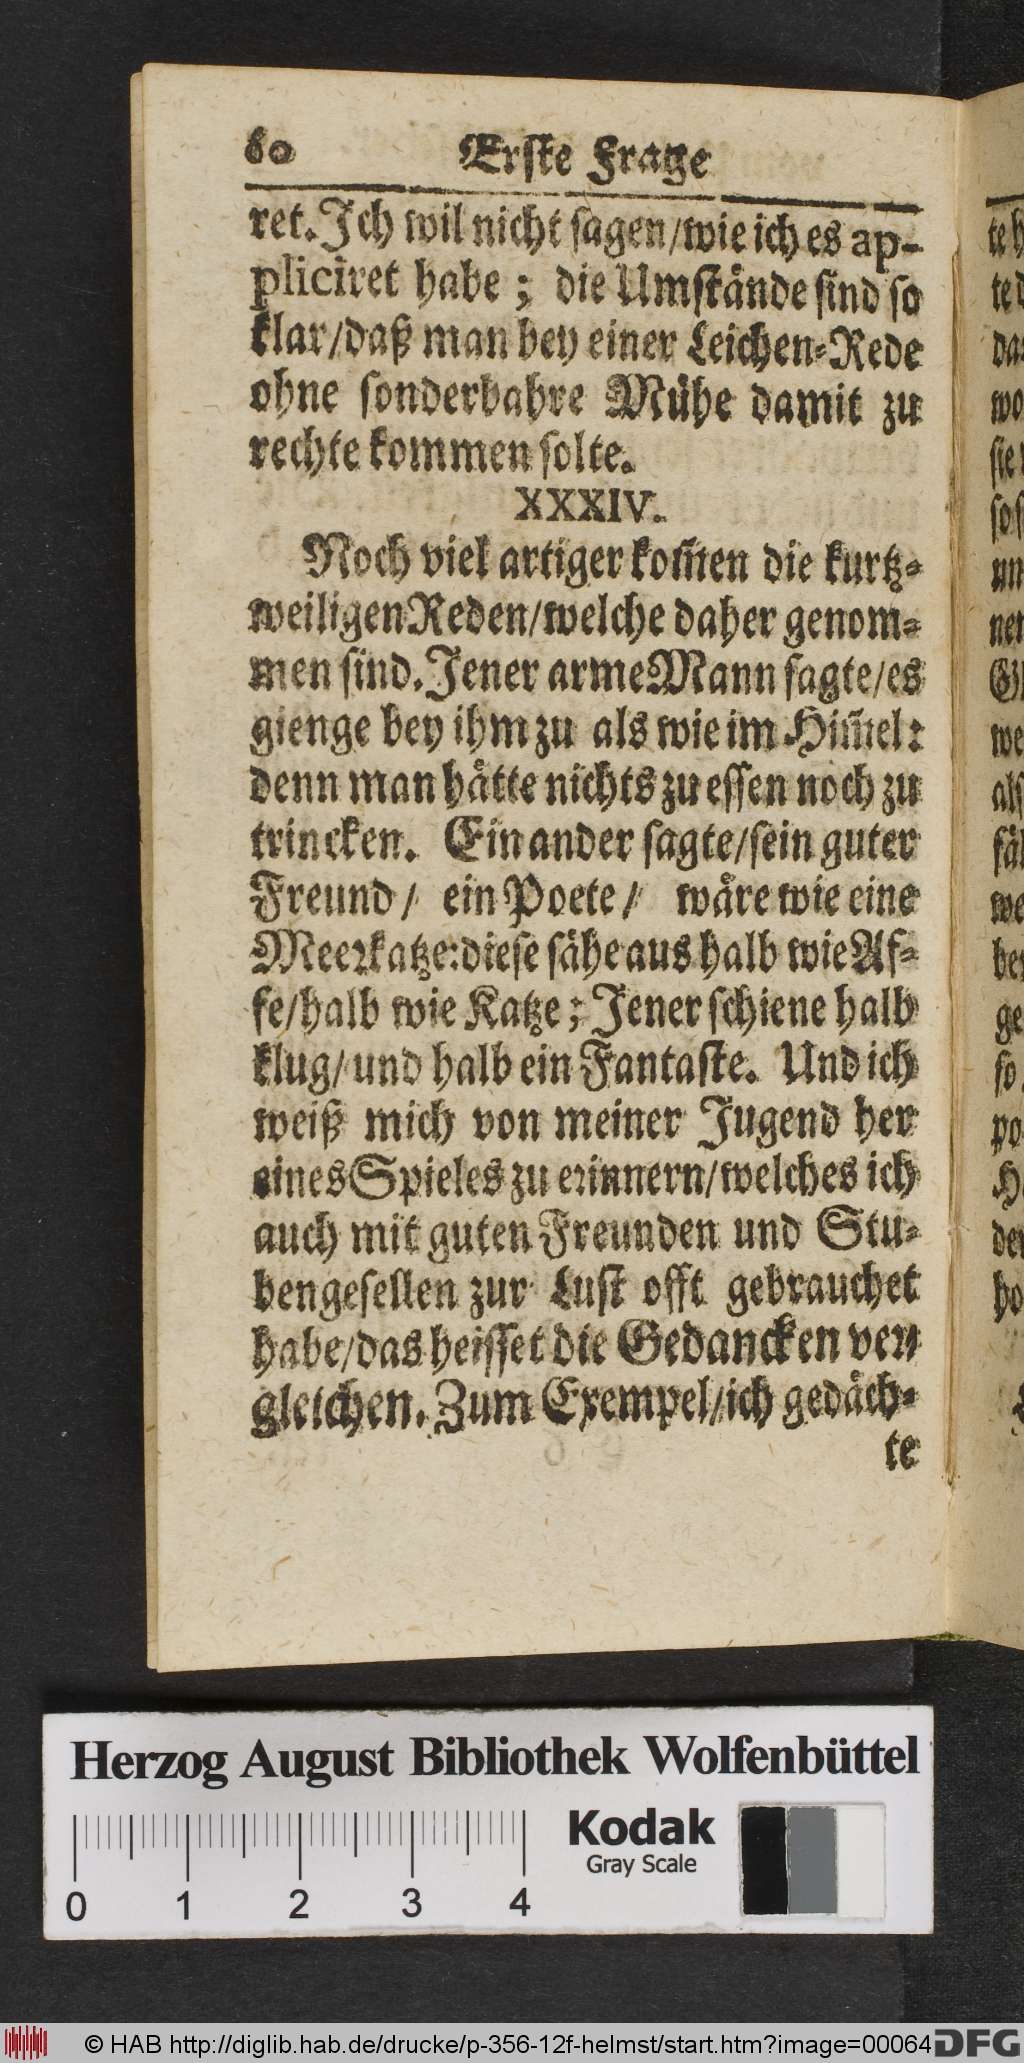 60 Erste Frage
ret. Ich wil nicht sagen/wie ich es ap-
pliciret habe; die Umstände sind so
klar/daß man bey einer Leichen-Rede
ohne sonderbahre Mühe damit zu
rechte kommen solte.
XXXIV.
Noch viel artiger kom̃en die kurtz-
weiligen Reden/welche daher genom-
men sind. Jener arme Mann sagte/es
gienge bey ihm zu als wie im Him̃el:
denn man hätte nichts zu essen noch zu
trincken. Ein ander sagte/sein guter
Freund/ ein Poete/ wäre wie eine
Meerkatze: diese sähe aus halb wie Af-
fe/halb wie Katze; Jener schiene halb
klug/und halb ein Fantaste. Und ich
weiß mich von meiner Jugend her
eines Spieles zu erinnern/welches ich
auch mit guten Freunden und Stu-
bengesellen zur Lust offt gebrauchet
habe/das heisset die Gedancken ver-
gleichen. Zum Exempel/ich gedäch-
te
te
te
wo
sie
so
un
we
als
we
ge
so
po
ho
Herzog August Bibliothek Wolfenbüttel
0 1 2 3 4
Kodak
Gray Scale
© HAB http://diglib.hab.de/drucke/p-356-12f-helmst/start.htm?image=00064
DFG